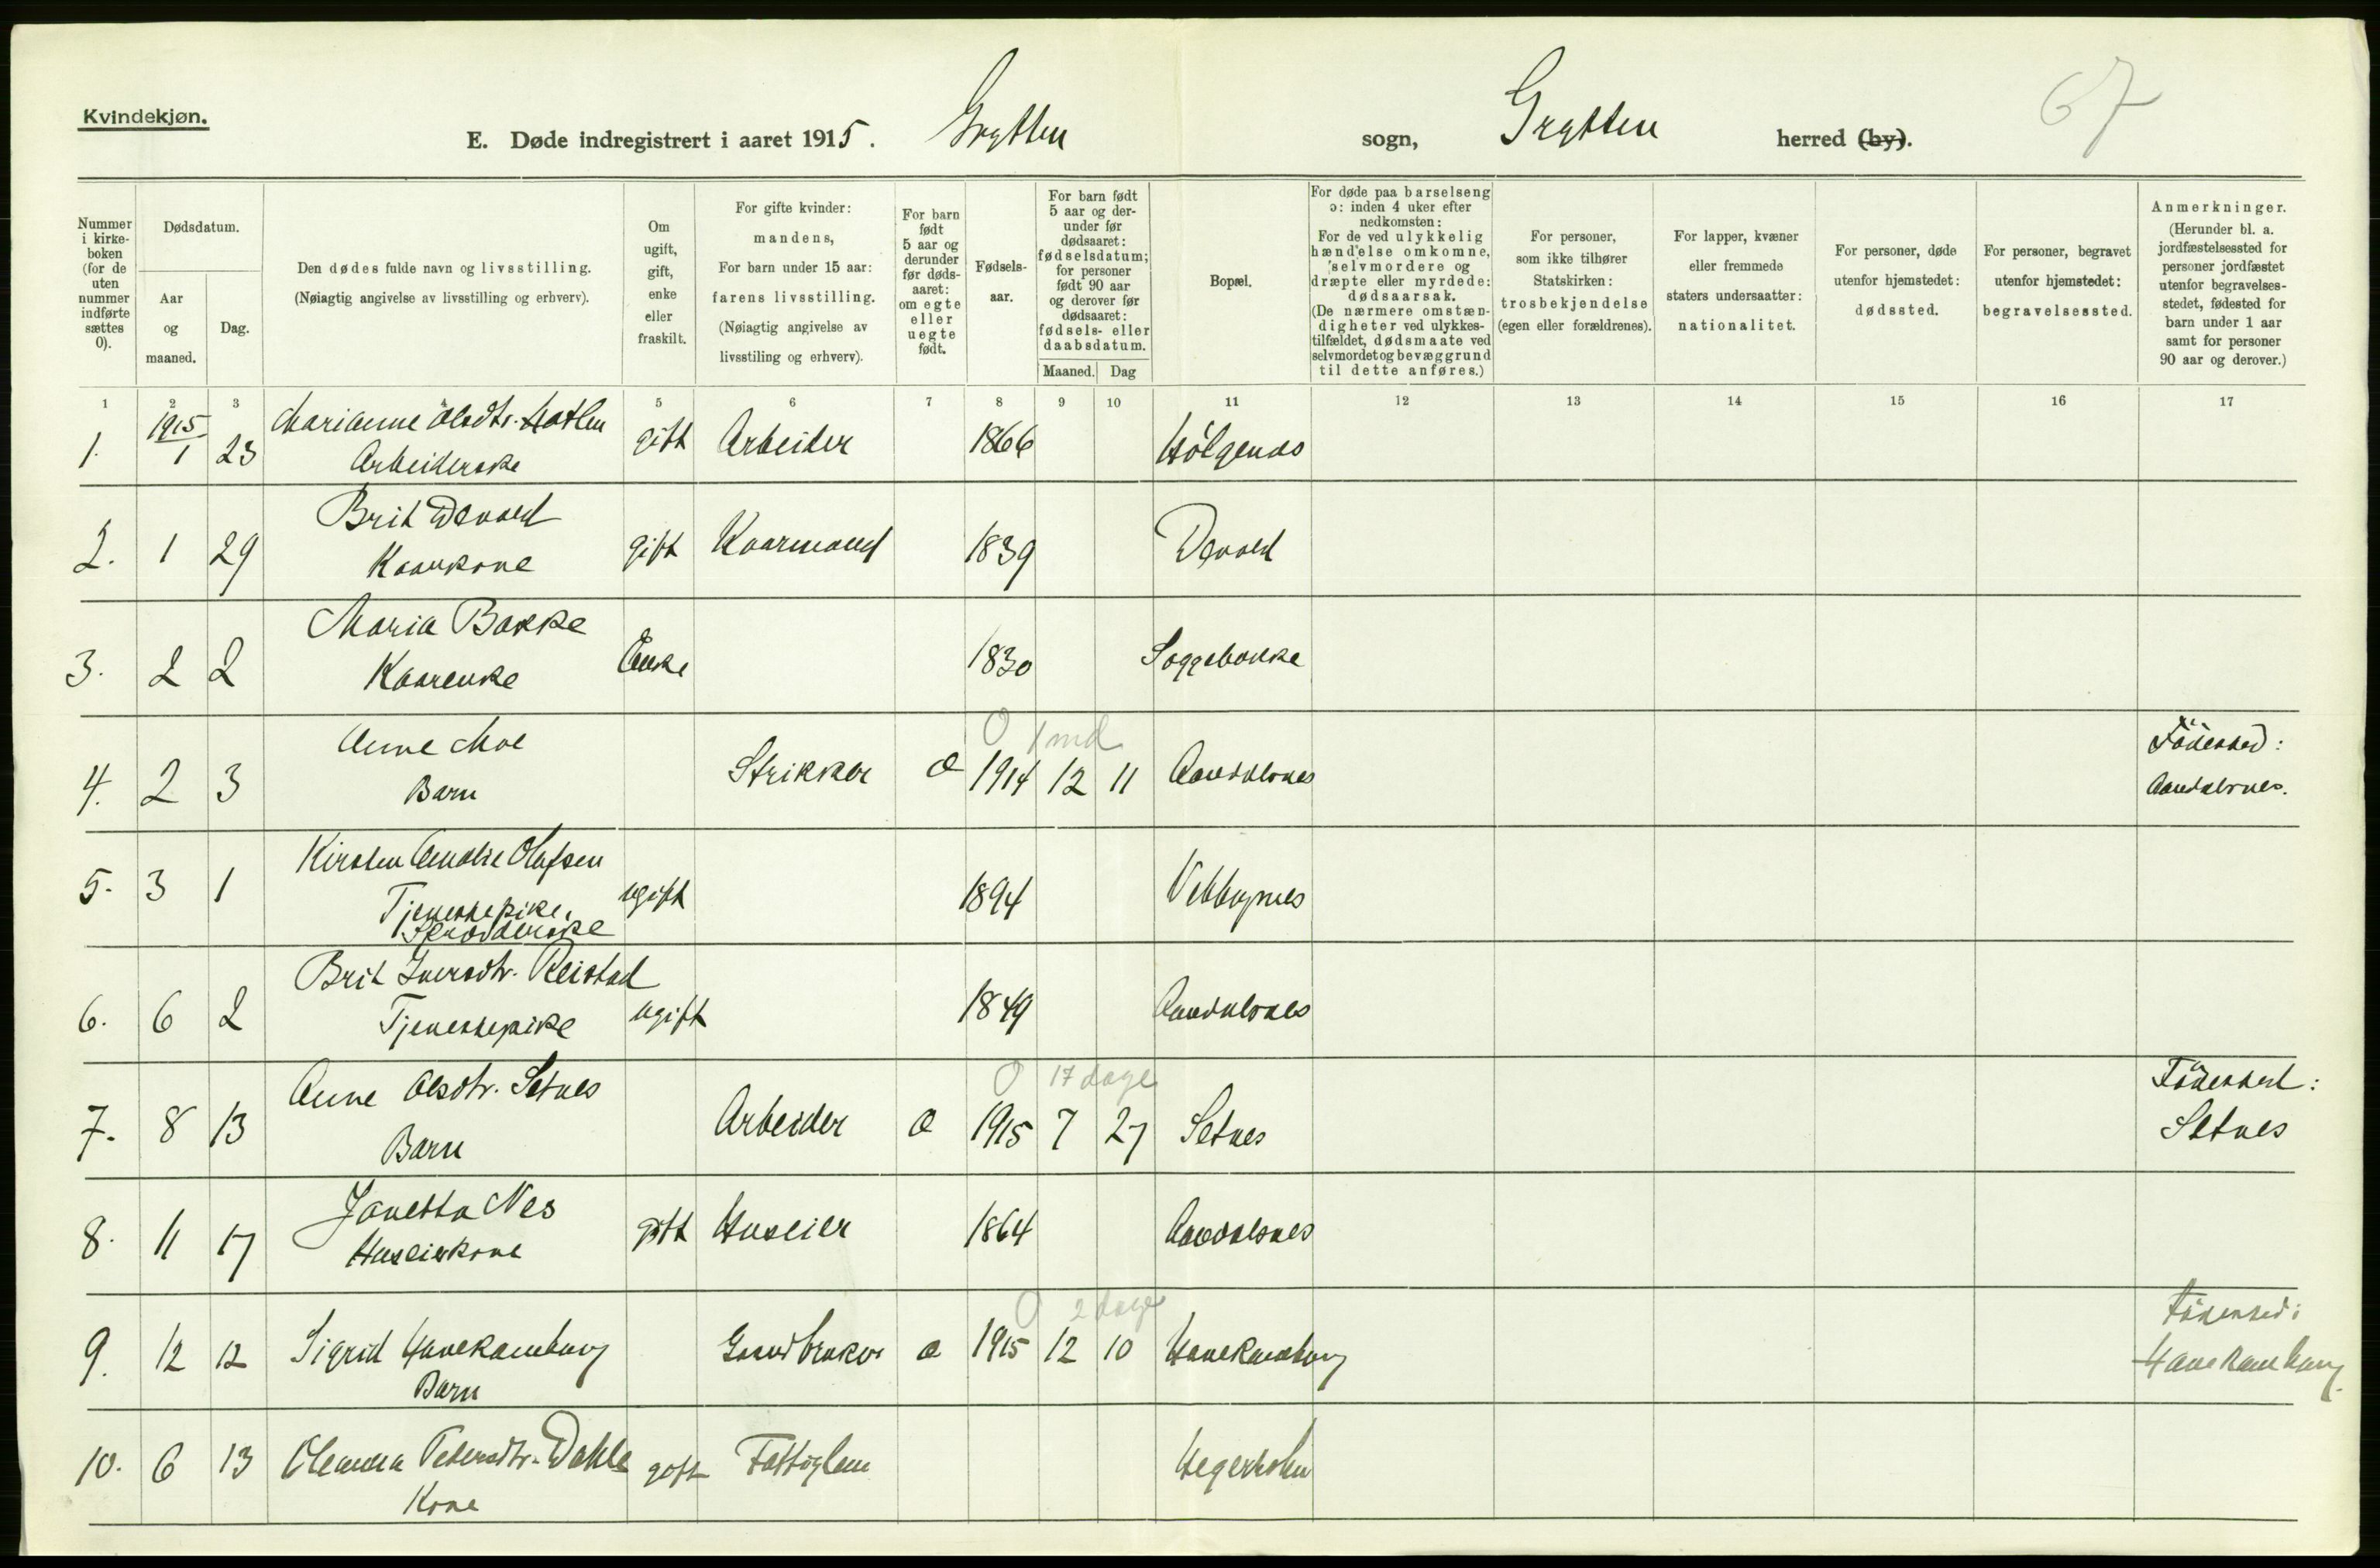 Kvindekjøn.
67
E. Døde indregistrert i aaret 1915. Grytten sogn, Grytten herred (by).
Nummer i kirkeboken (for de uten nummer indførte sættes 0).
Dødsdatum.
Aar og maaned.
Dag.
Den dødes fulde navn og livsstilling.
(Nøiagtig angivelse av livsstilling og erhverv).
Om ugift, gift, enke eller fraskilt.
For gifte kvinder: mandens,
For barn under 15 aar: farens livsstilling.
(Nøiagtig angivelse av livsstiling og erhverv).
For barn født 5 aar og derunder før dødsaaret: om egte eller uegte født.
Fødselsaar.
For barn født 5 aar og derunder før dødsaaret: fødselsdatum; for personer født 90 aar og derover før dødsaaret: fødsels- eller daabsdatum.
Maaned. Dag
Bopæl.
For døde paa barselseng ɔ: inden 4 uker efter nedkomsten:
For de ved ulykkelig hændelse omkomne, selvmordere og dræpte eller myrdede: dødsaarsak.
(De nærmere omstændigheter ved ulykkestilfældet, dødsmaate ved selvmordet og bevæggrund til dette anføres.)
For personer, som ikke tilhører Statskirken: trosbekjendelse (egen eller forældrenes).
For lapper, kvæner eller fremmede staters undersaatter: nationalitet.
For personer, døde utenfor hjemstedet: dødssted.
For personer, begravet utenfor hjemstedet: begravelsessted.
Anmerkninger.
(Herunder bl. a. jordfæstelsessted for personer jordfæstet utenfor begravelsesstedet, fødested for barn under 1 aar samt for personer 90 aar og derover.)
1 2 3 5 6 7 8 9 10 11 12 13 14 15 16 17
1. 1915 1 23 Marianne Olsdtr. Hatlen gift Arbeider 1866 Hólgenes
Arbeiderske
2. 1 29 Brit Devold gift Kaarmand 1839 Devold
Kaarkone
3. 2 2 Maria Bakke Enke 1830 Soggebakke
Kaarenke
0 1 md
4. 2 3 Anne Moe Strikker 1914 12 11 Aandalsnes Födested:
Barn Aandalsnes.
5. 3 1 Kirsten Amalie Olafsen ugift 1894 Veblungnes
Tjenestepike,
6. 6 2 Brit Iversdtr. Reistad ugift 1849 Aandalsnes
Tjenestepike
0 17 dage
7. 8 13 Anne Olsdtr. Setnes Arbeider 1915 7 27 Setnes Födested:
Barn Setnes
8. 11 17 Janetta Nes gift Huseier 1864 Aandalsnes
Huseierkone
0 2 dage
9. 12 12 Sigrid Hanekamhaug Gaardbruker 1915 12 10 Hanekamhaug Födested:
Barn Hanekamhaug.
10. 6 13 Oleanna Petersdtr. Dahle gift Fattiglem Hegerholm
Kone